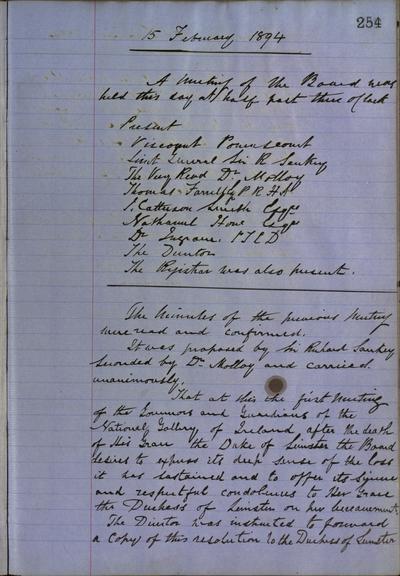 254
15 February 1894
A Meeting of the Board was
held this day at half past three o'clock
Present
Viscount Powerscourt
Lieut General Sir R Sankey
The Very Revd Dr Molloy
Thomas Farrell P R H A
S. Catterson Smith Esqre
Nathaniel Hone Esqre
Dr Ingram. F T C D
The Director
The Registrar was also present.
The Minutes of the previous Meeting
were read and confirmed.
It was proposed by Sir Richard Sankey
seconded by Dr Molloy and carried
unanimously.
That at this the first Meeting
of the Governors and Guardians of the
National Gallery of Ireland after the death
of His Grace the Duke of Leinster the Board
desires to express its deep sense of the loss
it has sustained and to offer its sincere
and respectful condolences to Her Grace
the Duchess of Leinster on her bereavement.
The Director was instructed to forward
a Copy of this resolution to the Duchess of Leinster